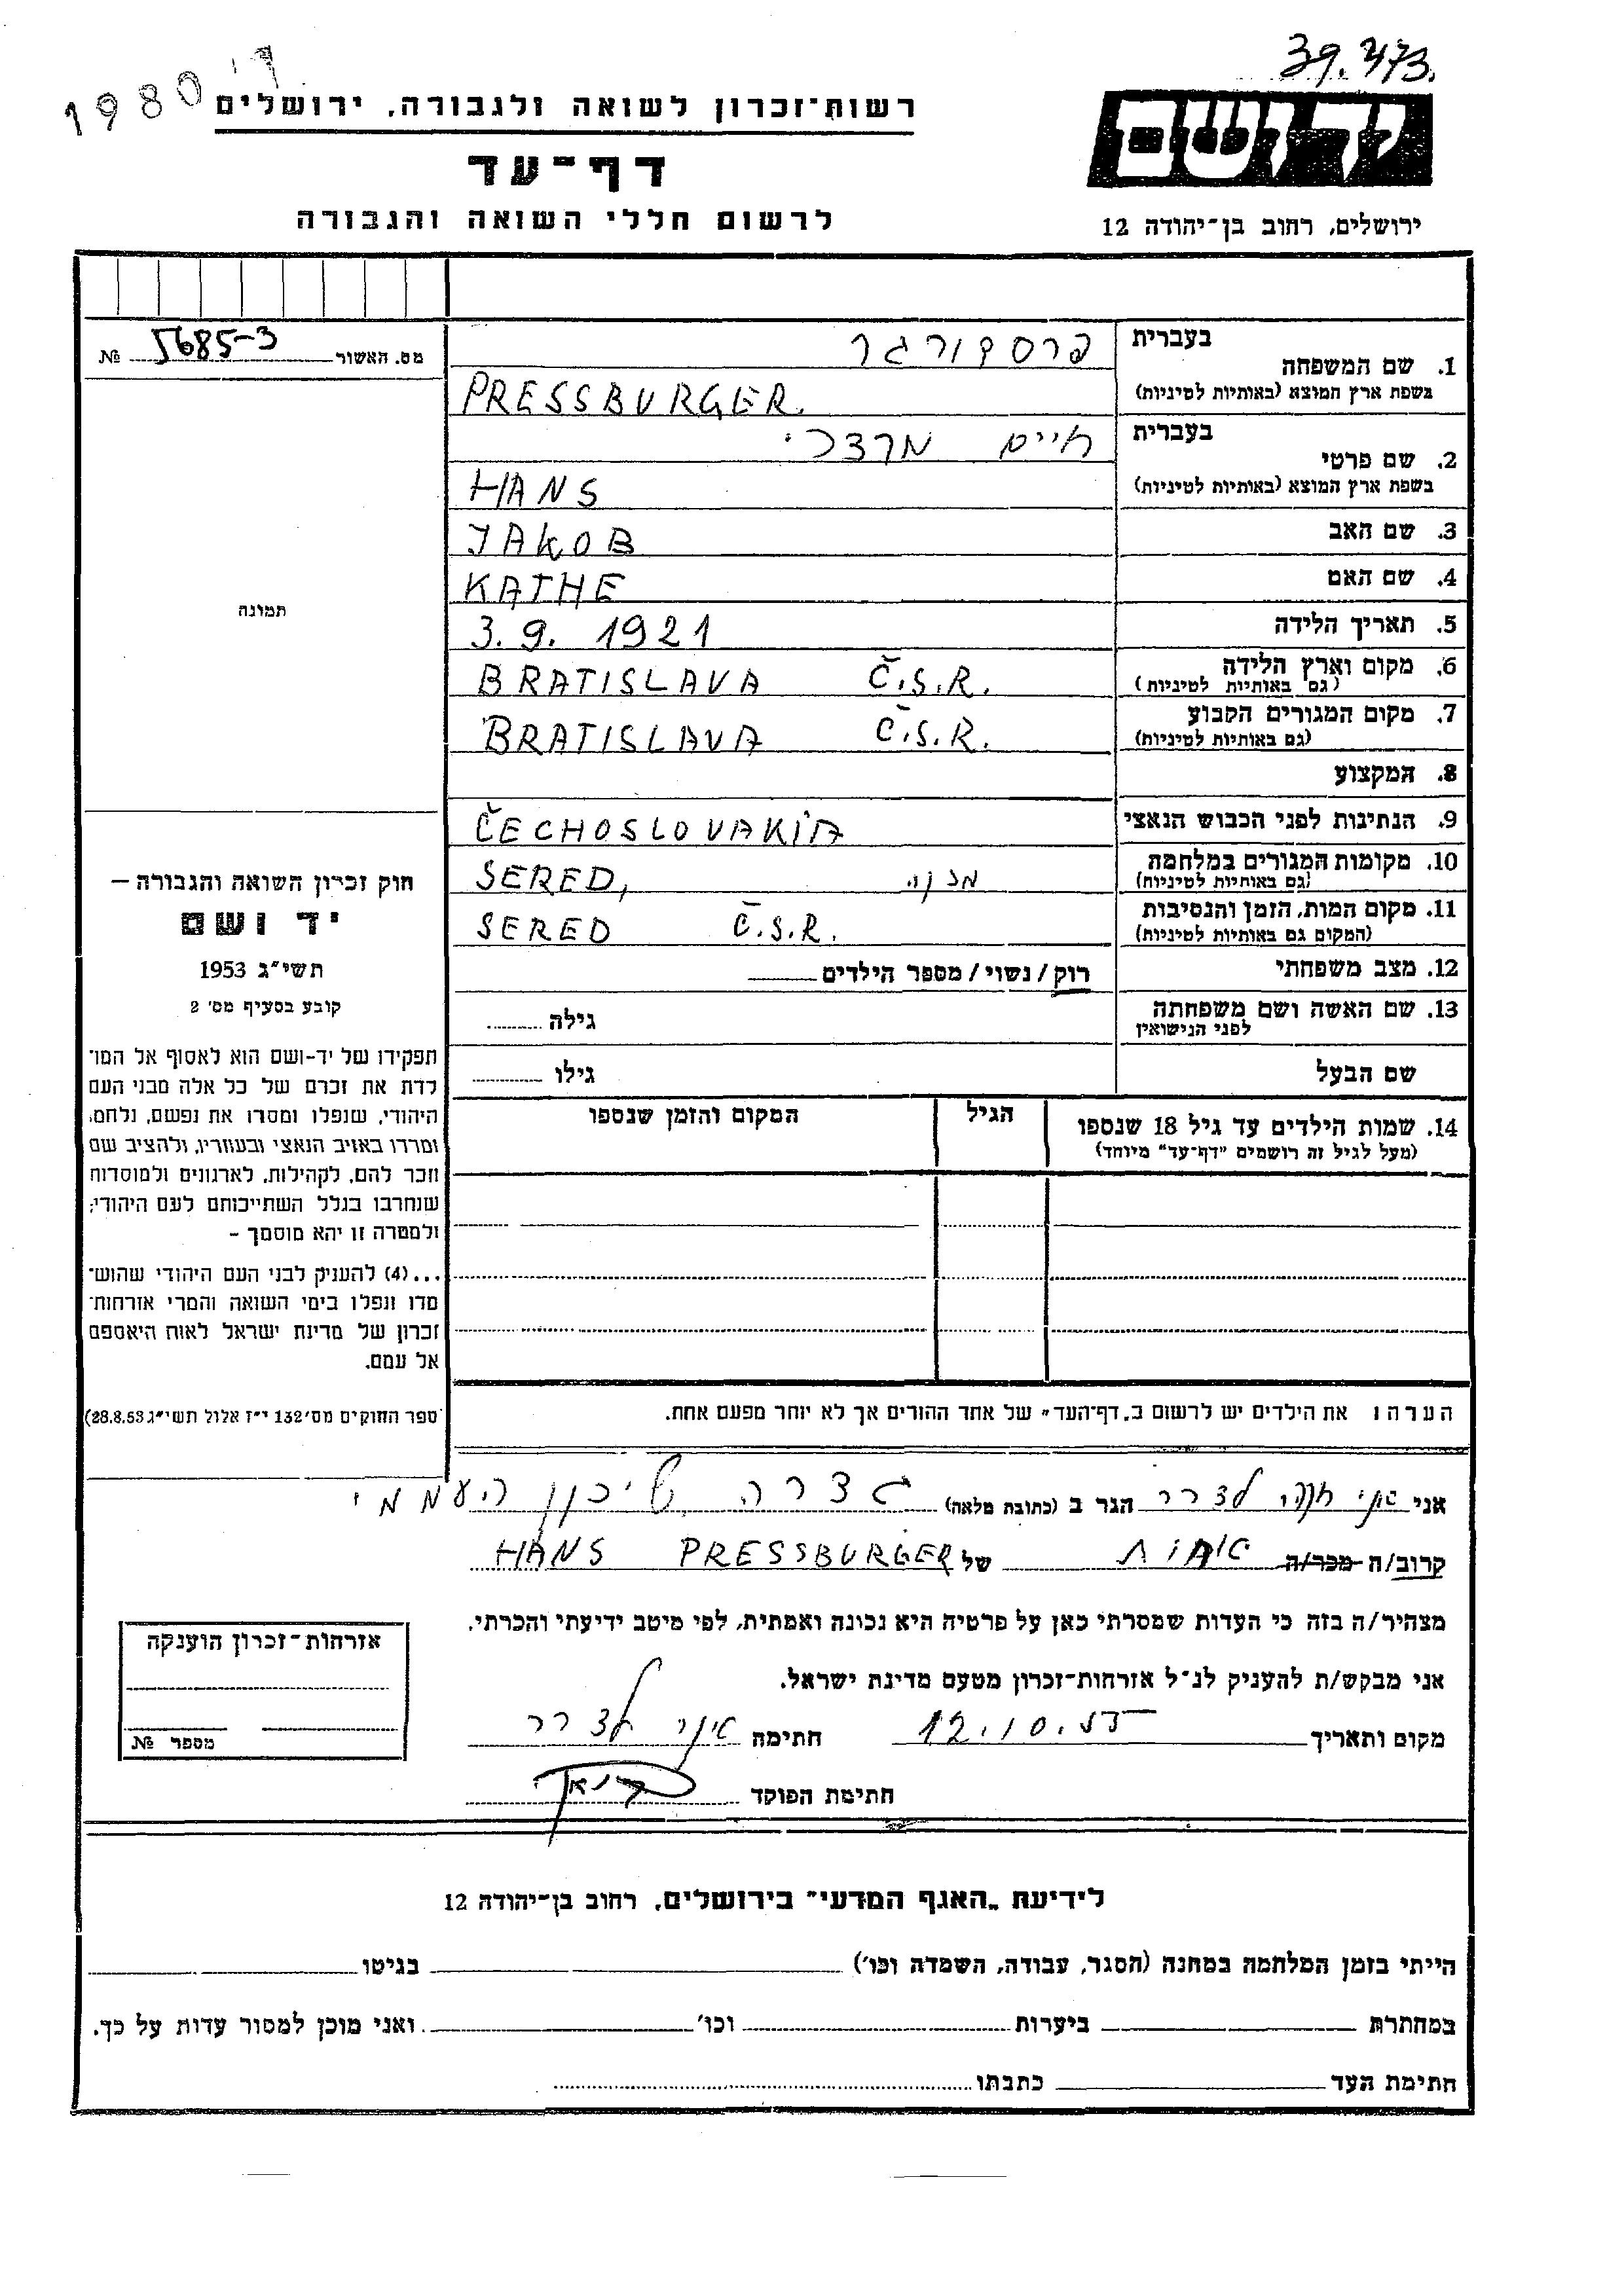 39.473.
1980 'ק
רשות־זכרון לשואה ולגבורה, ירושלים
דף־עד
לרשום חללי השואה והגבורה
יד ושם
ירושלים, רחוב בן־יהודה 12
מס. האשור 5685-3 №
1. שם המשפחה
בעברית פרסבורגר
בשפת ארץ המוצא (באותיות לטיניות) PRESSBURGER.
2. שם פרטי
בעברית חיים מרדכי
בשפת ארץ המוצא (באותיות לטיניות) HANS
3. שם האב JAKOB
4. שם האם KATHE
5. תאריך הלידה 3.9. 1921
6. מקום וארץ הלידה BRATISLAVA Č.S.R.
(גם באותיות לטיניות)
7. מקום המגורים הקבוע BRATISLAVA Č.S.R.
(גם באותיות לטיניות)
8. המקצוע
9. הנתינות לפני הכבוש הנאצי ČECHOSLOVAKIA
10. מקומות המגורים במלחמה SERED, מחנה
(גם באותיות לטיניות)
11. מקום המות, הזמן והנסיבות SERED Č.S.R.
(המקום גם באותיות לטיניות)
12. מצב משפחתי רוק / נשוי / מספר הילדים
13. שם האשה ושם משפחתה גילה
לפני הנישואין
שם הבעל גילו
14. שמות הילדים עד גיל 18 שנספו הגיל המקום והזמן שנספו
(מעל לגיל זה רושמים "דף־עד" מיוחד)
הערה: את הילדים יש לרשום ב"דף־העד" של אחד ההורים אך לא יותר מפעם אחת.
תמונה
חוק זכרון השואה והגבורה —
יד ושם
תשי"ג 1953
קובע בסעיף מס' 2
תפקידו של יד-ושם הוא לאסוף אל המו־
לדת את זכרם של כל אלה מבני העם
היהודי, שנפלו ומסרו את נפשם, נלחמו
ומרדו באויב הנאצי ובעוזריו, ולהציב שם
וזכר להם, לקהילות, לארגונים ולמוסדות
שנחרבו בגלל השתייכותם לעם היהודי;
ולמטרה זו יהא מוסמך –
...(4) להעניק לבני העם היהודי שהוש־
מדו ונפלו בימי השואה והמרי אזרחות־
זכרון של מדינת ישראל לאות היאספם
אל עמם.
(ספר החוקים מס' 132 י"ז אלול תשי"ג 28.8.53)
אני חנה לדרר הגר ב (כתובת מלאה) גדרה שיכון העממי
קרוב/ה מכר/ה אחות של HANS PRESSBURGER
מצהיר/ה בזה כי העדות שמסרתי כאן על פרטיה היא נכונה ואמתית, לפי מיטב ידיעתי והכרתי.
אני מבקש/ת להעניק לנ"ל אזרחות־זכרון מטעם מדינת ישראל.
מקום ותאריך 12.10.55 חתימה לדרר
חתימת הפוקד
אזרחות־זכרון הוענקה
מספר №
לידיעת "האגף המדעי" בירושלים, רחוב בן־יהודה 12
הייתי בזמן המלחמה במחנה (הסגר, עבודה, השמדה וכו') בגיטו
במחתרת ביערות וכו' ואני מוכן למסור עדות על כך.
חתימת העד כתבתו